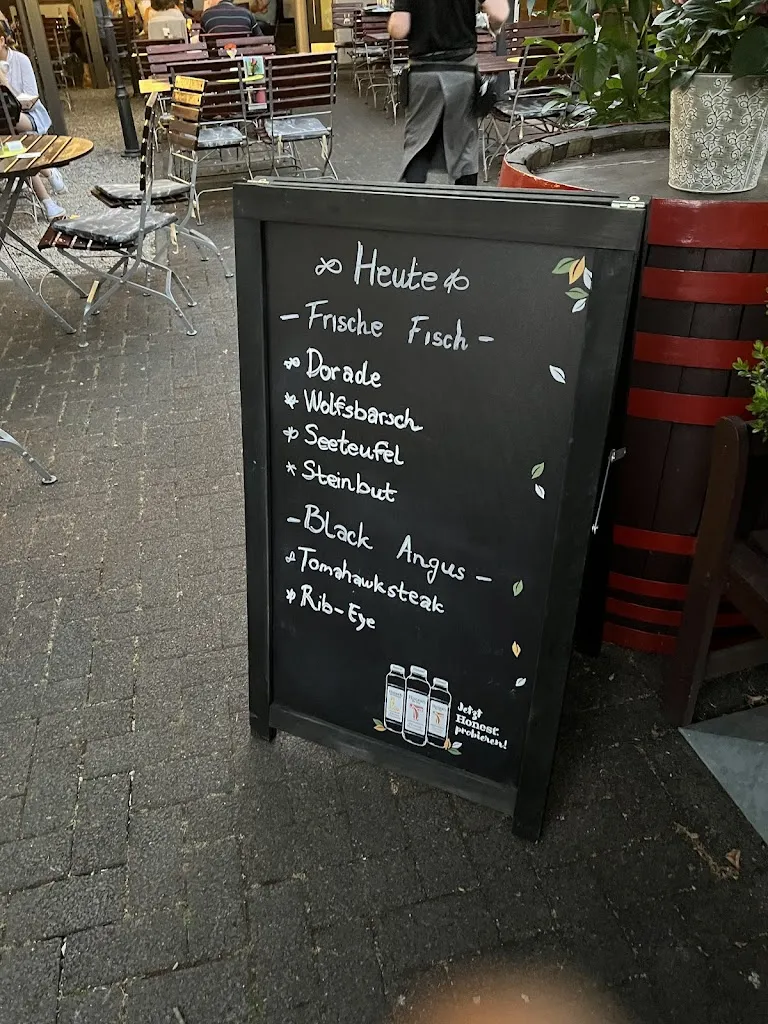 Heute
- Frische Fisch -
* Dorade
* Wolfsbarsch
* Seeteufel
* Steinbut
- Black Angus -
* Tomahawksteak
* Rib-Eye
Jetzt
Honest
probieren!